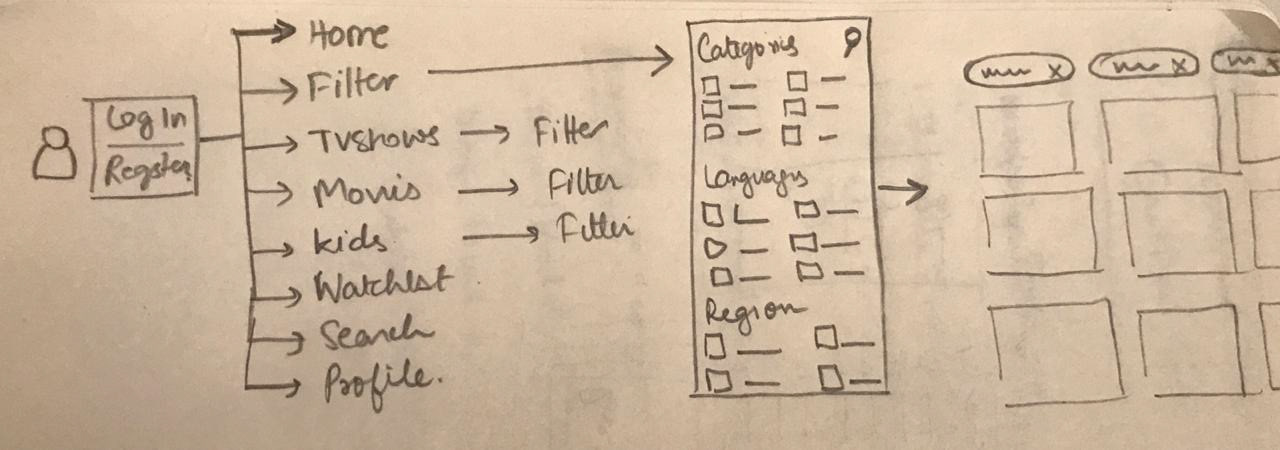 Log In
Register
Home
Filter
TVshows → Filter
Movis → Filter
kids → Filter
Watchlst
Search
Profile.
Categoris
Languages
Region
x
x
x